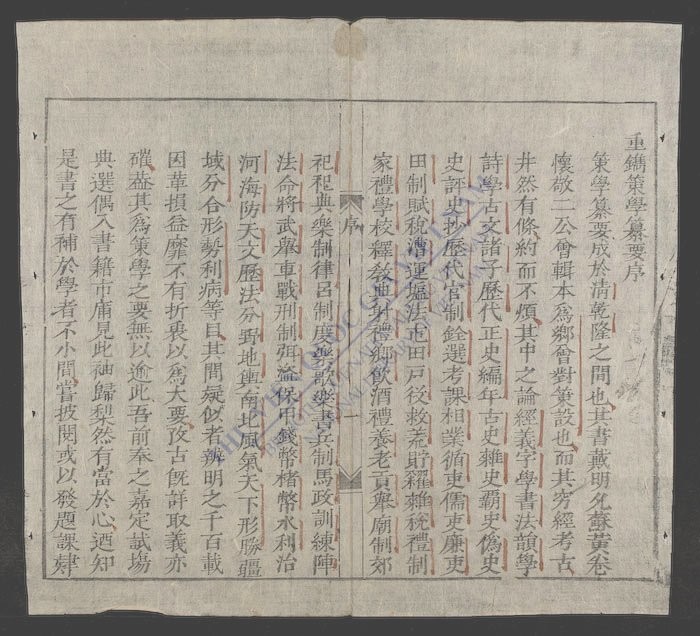 重鐫策學纂要序
策學纂要成於清乾隆之間也其書戴明允蘇黃卷
懷敬二公會輯本為鄉會對策設也而其窮經考古
井然有條約而不煩其中之論經義字學書法韻學
詩學古文諸子歷代正史編年古史雜史霸史偽史
史評史抄歷代官制銓選考課相業循吏儒吏廉吏
田制賦稅漕運塩法屯田戶役救荒貯糴雜稅禮制
家禮學校釋奠典射禮鄉飲酒禮養老貢舉廟制郊
祀祀典樂制律呂制度樂歌樂書兵制馬政訓練陣
法命將武舉車戰刑制弭盜保甲錢幣楮幣水利治
河海防天文歷法分野地輿南北風氣天下形勝疆
域分合形勢利病等目其間疑似者辨明之千百載
因革損益靡不有折衷以為大要攷古旣詳取義亦
確蓋其為策學之要無以逾此吾前奉之嘉定試塲
典選偶入書籍市庸見此袖歸犁然有當於心迺知
是書之有補於學者不小間嘗披閱或以發題課肄
序
一
THƯ VIỆN QUỐC GIA VIỆT NAM
NATIONAL LIBRARY OF VIETNAM